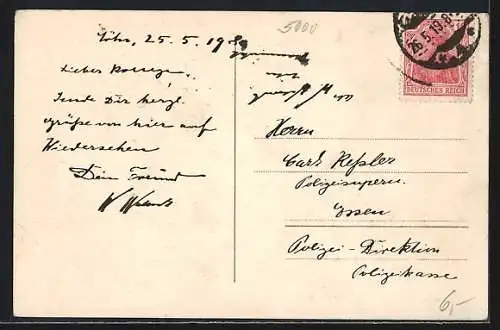 25.5.19
Lieber Kollege,
Sende Dir herzl.
Grüße von hier auf
Wiedersehen
Dein Freund
5000
26.5.19.8
DEUTSCHES REICH
Herrn
Carl Keßler
Essen
Polizei-Direktion
Polizeikasse
6,-